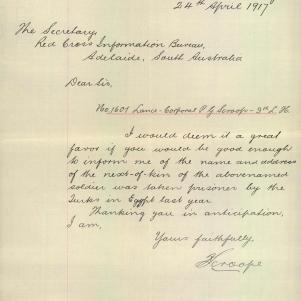 24th April 1917
The Secretary,
Red Cross Information Bureau,
Adelaide, South Australia
Dear Sir,
No. 1601 Lance-Corporal P G Scroope - 3rd L. H.
I would deem it a great
favor if you would be good enough
to inform me of the name and address
of the next-of-kin of the abovenamed
soldier was taken prisoner by the
Turks in Egypt last year.
Thanking you in anticipation,
I am,
Yours faithfully,
Scroope